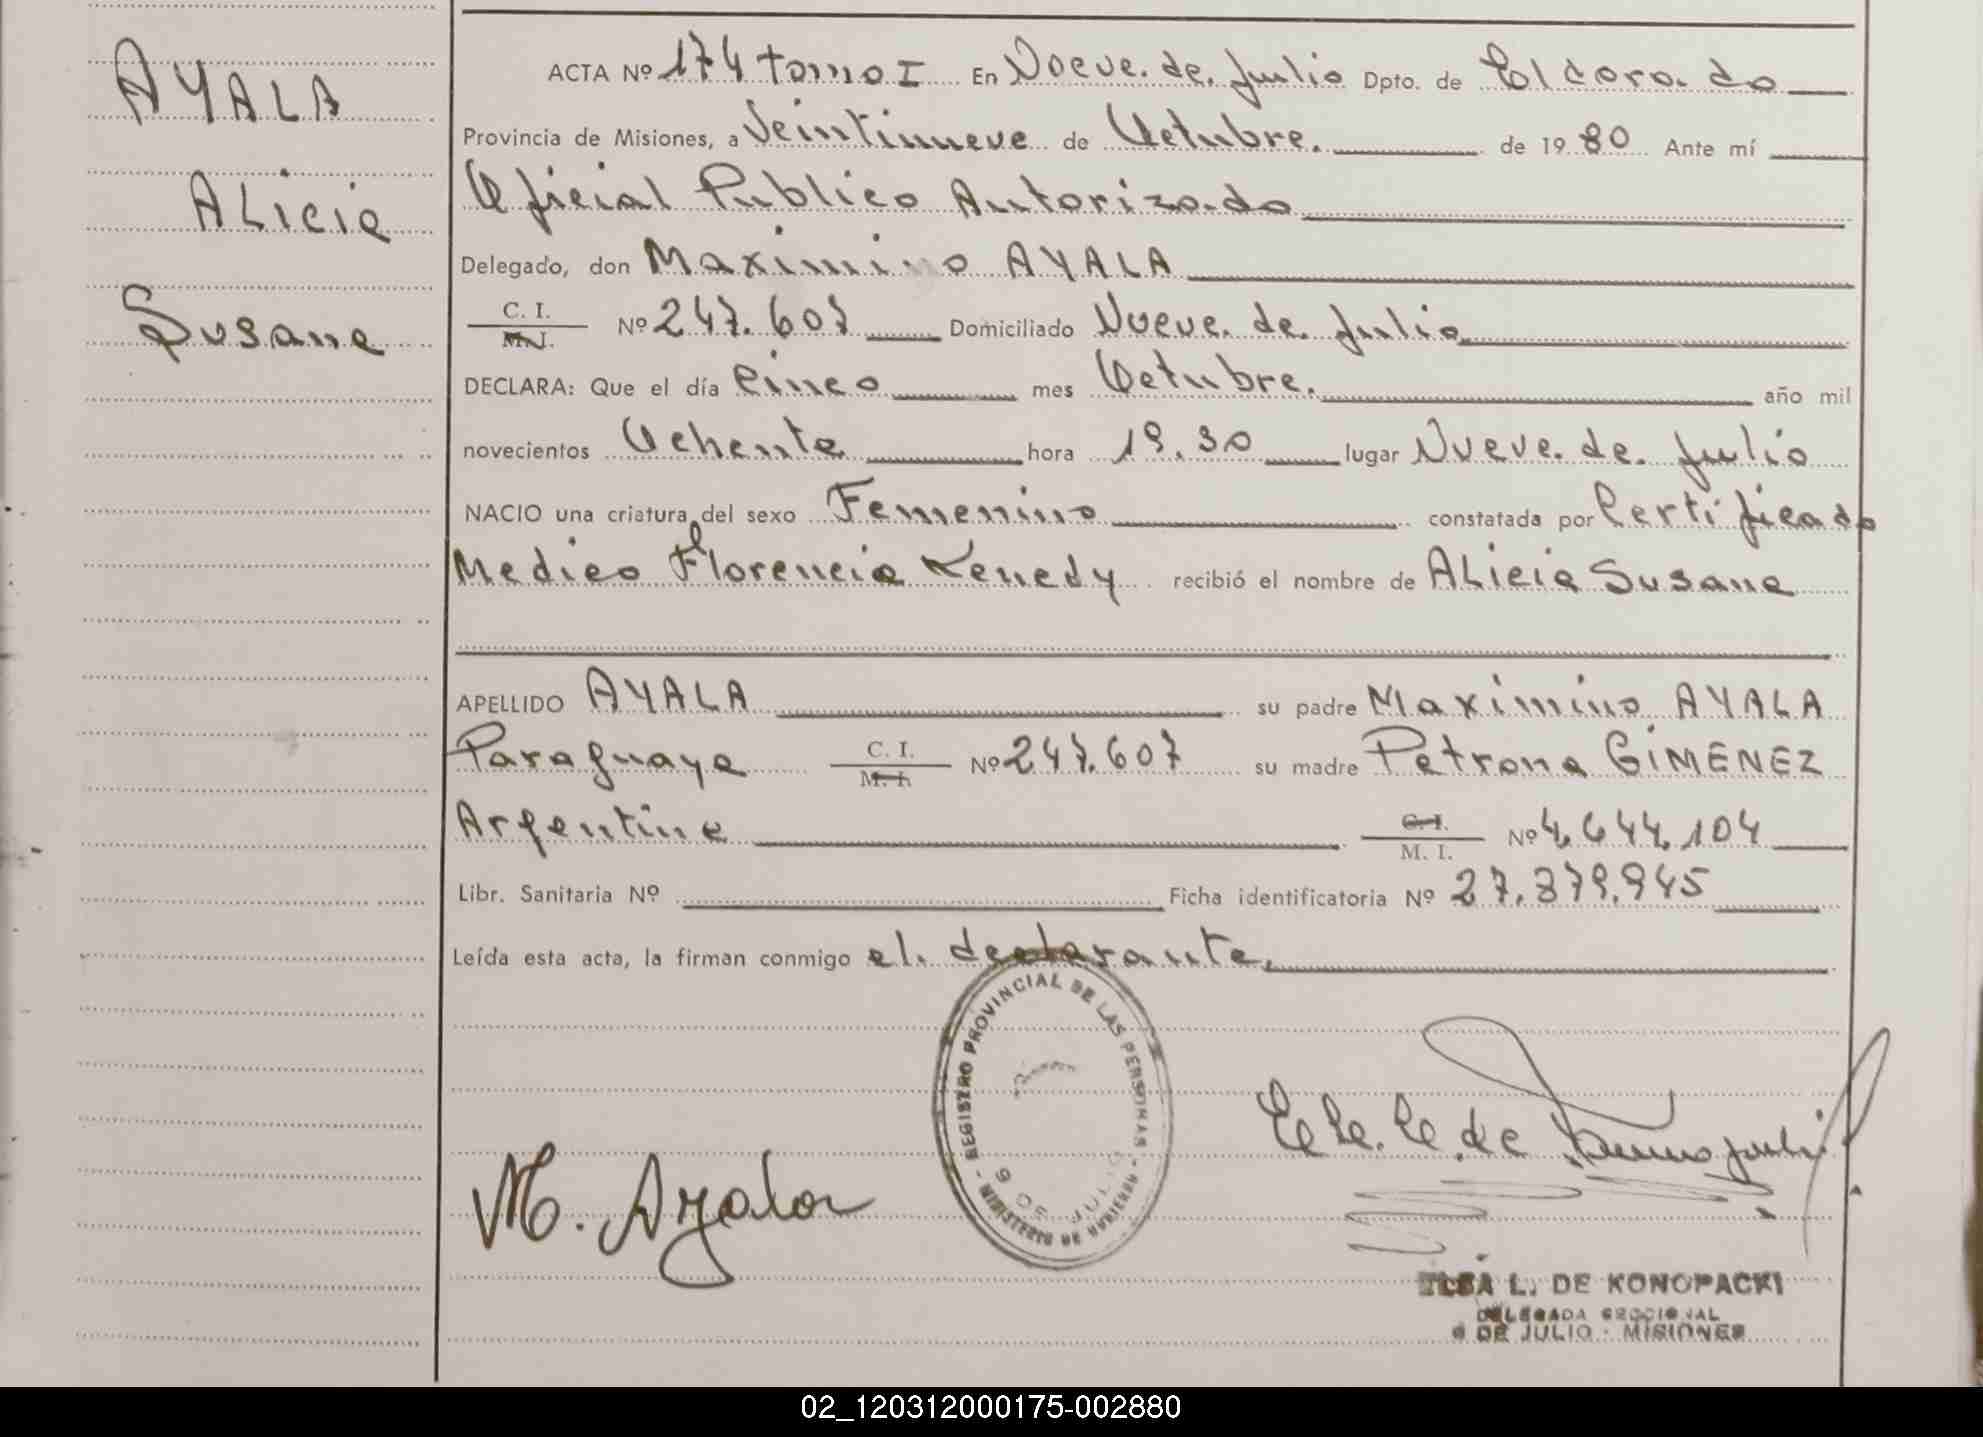 AYALA
Alicia
Susana
ACTA Nº 174 tomo I En Nueve de Julio Dpto. de Eldorado
Provincia de Misiones, a Veintinueve de Octubre. de 19 80 Ante mí
Oficial Publico Autorizado
Delegado, don Maximino AYALA
C. I.
M. I.
Nº 247.607 Domiciliado Nueve de Julio
DECLARA: Que el día Cinco mes Octubre. año mil
novecientos Ochenta hora 19,30 lugar Nueve de Julio
NACIO una criatura del sexo Femenino constatada por Certificado
Medico Florencia Kenedy recibió el nombre de Alicia Susana
APELLIDO AYALA su padre Maximino AYALA
Paraguaya C. I. M. I. Nº 247.607 su madre Petrona GIMENEZ
Argentina C. I. M. I. Nº 4,644,104
Libr. Sanitaria Nº Ficha identificatoria Nº 27.879.945
Leída esta acta, la firman conmigo el declarante,
REGISTRO PROVINCIAL DE LAS PERSONAS - MINISTERIO DE GOBIERNO -
9 DE JULIO
M. Ayala
ELSA L. DE KONOPACKI
DELEGADA SECCIONAL
9 DE JULIO - MISIONES
02_120312000175-002880